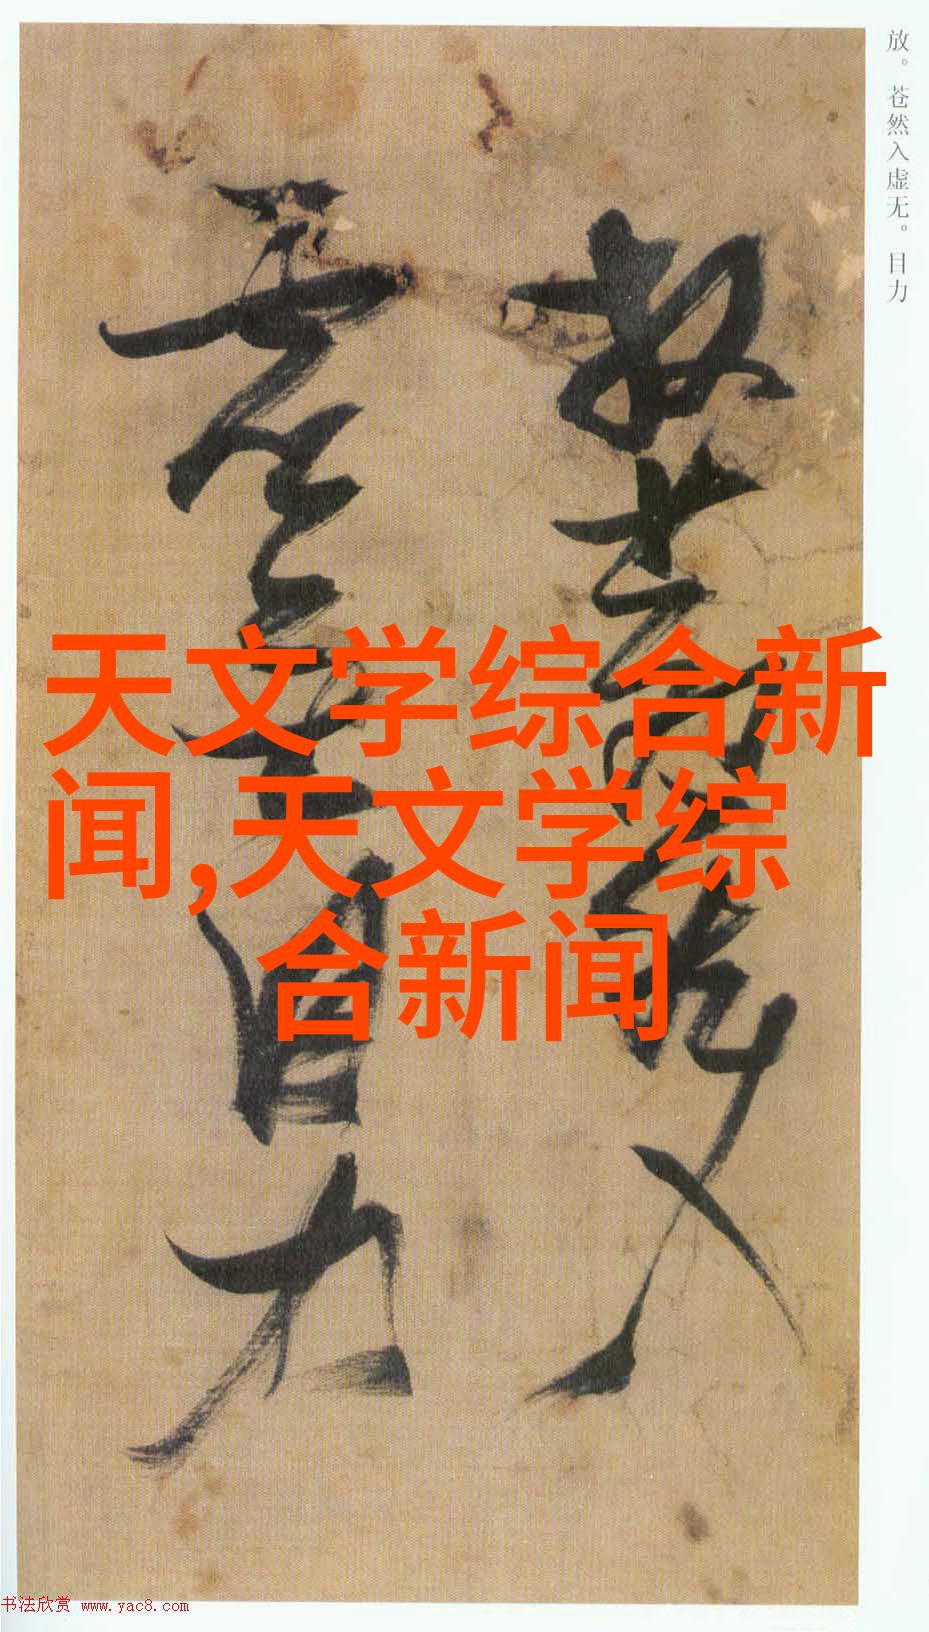 放。苍然入虚无。目力
放苍然入
虚无目力
天文学综合新
闻,天文学综
合新闻
书法欣赏 www.yac8.com